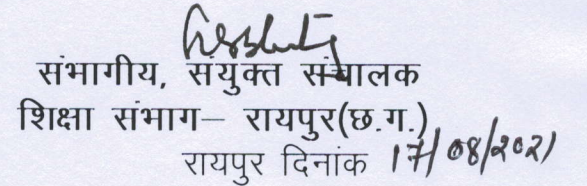 संभागीय, संयुक्त संचालक
शिक्षा संभाग– रायपुर(छ.ग.)
रायपुर दिनांक 17/08/2021